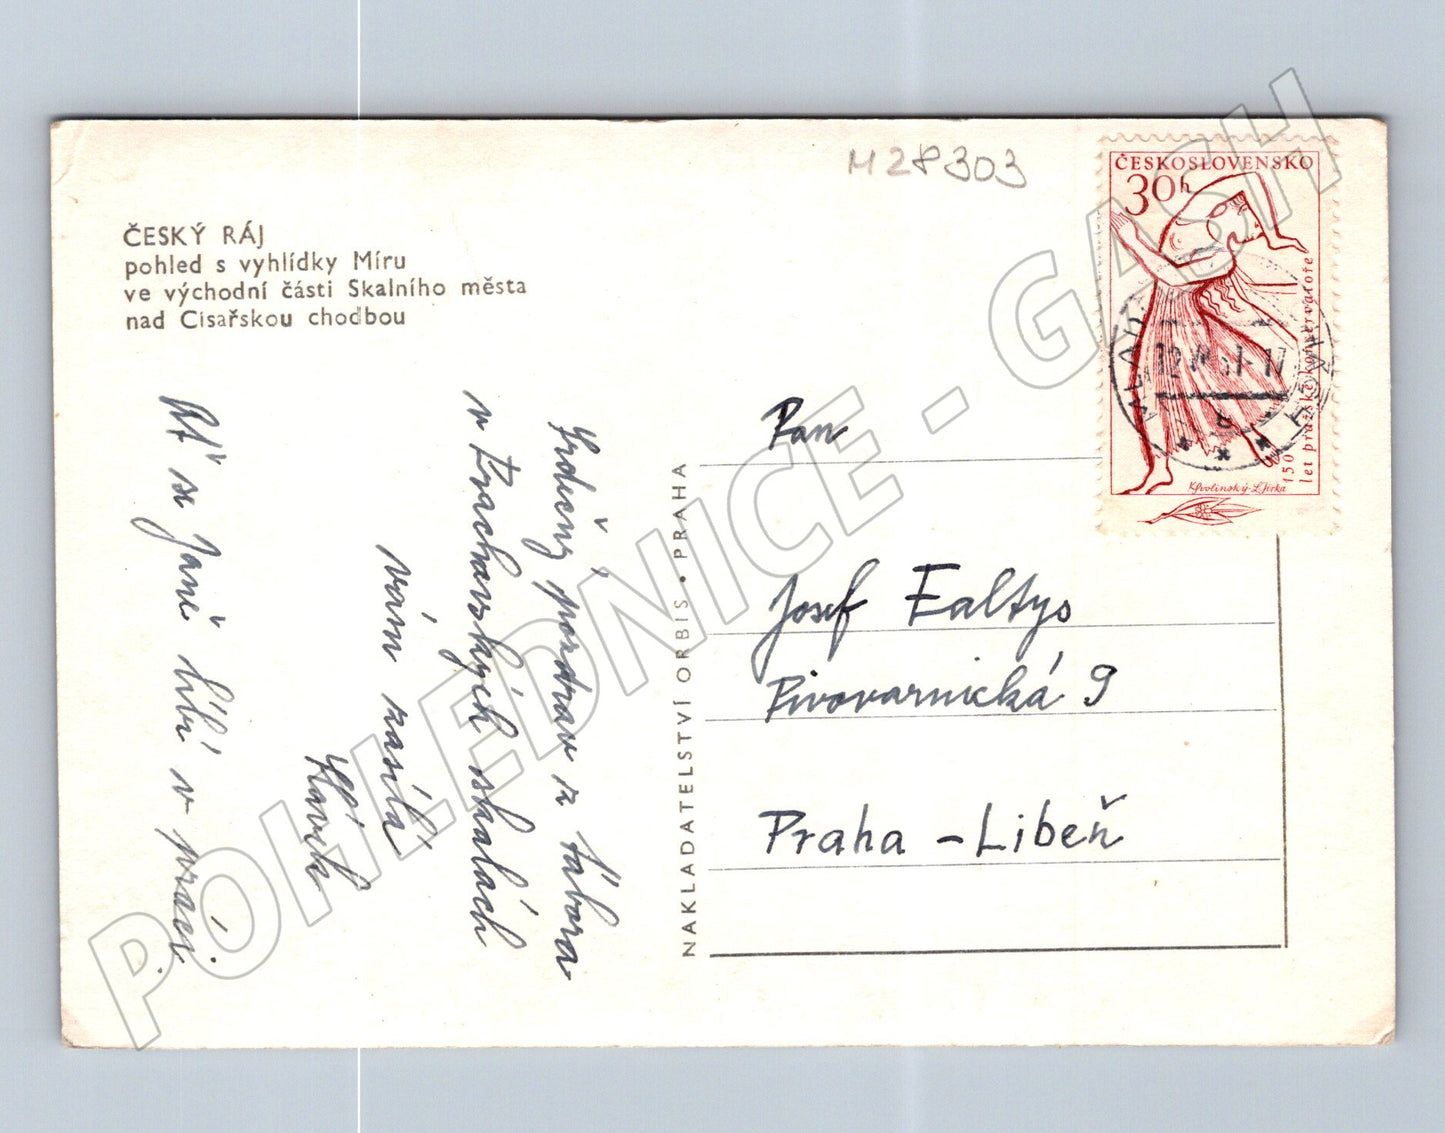 M28303
ČESKOSLOVENSKO
30h
150 let pražské konzervatoře
ČESKÝ RÁJ
pohled s vyhlídky Míru
ve východní části Skalního města
nad Cisařskou chodbou
Srdečný pozdrav z tábora
v Prachovských skalách
vám zasílá
Slávek
Ať se Janě líbí v práci.
NAKLADATELSTVÍ ORBIS • PRAHA
Pan
Josef Ealtys
Pivovarnická 9
Praha - Libeň
POHLEDNICE - GASH